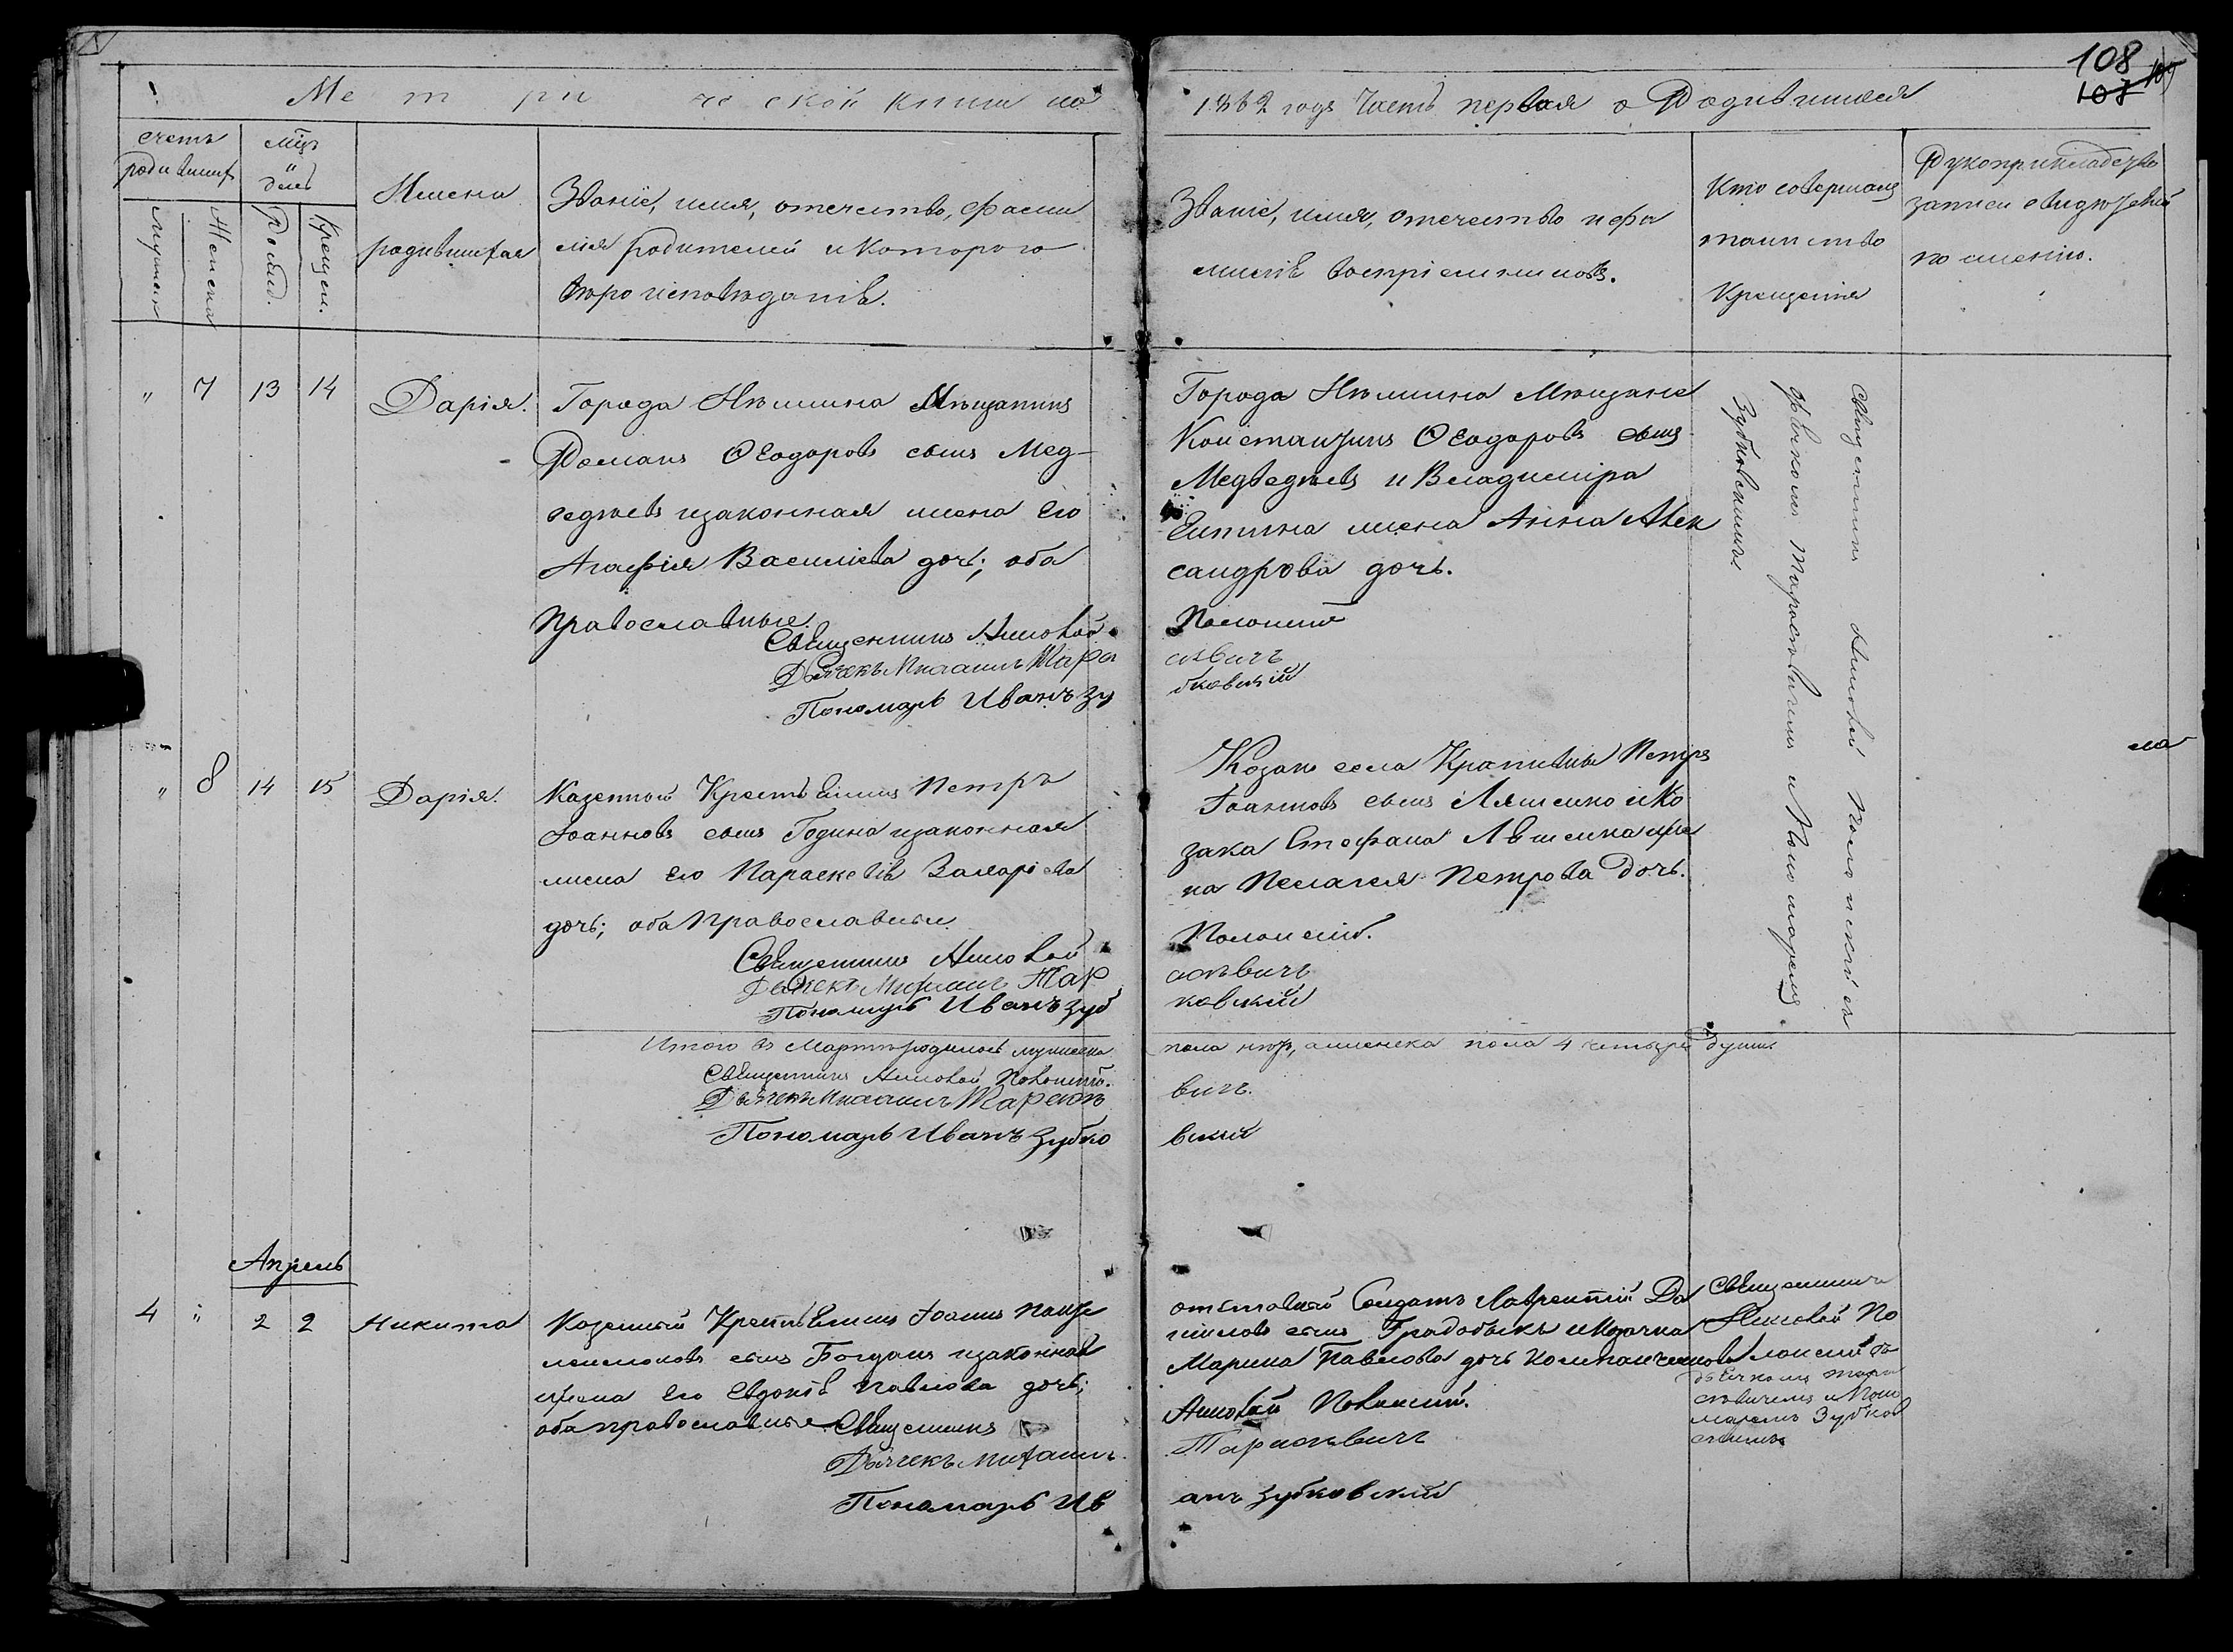 108
107
Метрической книги на
1862 года Часть первая о Родившихся
счетъ родившихъ
мцъ и день
Мужеск
Женски
Рожд.
Крещен.
Имена
родившихся
Званіе, имя, отечество, фами
лія родителей и которого
вѣроисповѣданія.
Званіе, имя, отечество и фа
милія воспріемниковъ.
Кто совершалъ
таинство
Крещенія
Рукоприкладство
записи свидѣтелей
по желанію.
" 7 13 14 Дарія.
Города Нѣжина Мѣщанинъ
Романъ Ѳеодоровъ сынъ Мед-
ведѣевъ и законная жена его
Агафія Василіева дочь; оба
Православные.
Священникъ Алексѣй
Дьячекъ Михаилъ Тара
Пономарь Иванъ Зу
Города Нѣжина Мѣщане
Константинъ Ѳеодоровъ сынъ
Медведѣевъ и Владиміра
жена Анна Алек
сандрова дочь.
Полонскій
севичъ
бковскій
Священникъ Полонскій съ
дьячкомъ Тарасевичемъ и Пономаремъ
Зубковскимъ
" 8 14 15 Дарія.
Казенный Крестьянинъ Петръ
Іоанновъ сынъ Година и законная
жена его Параскевія
дочь; оба Православные.
Священникъ
Дьячекъ Михаилъ Тар
Пономарь Иванъ Зуб
Козакъ села Крапивны Петръ
Іоанновъ сынъ Ляшенко и Ко
зака Стефана Лвшенка же
на Пелагея Петрова дочь.
Полонскій.
асѣвичъ
ковскій
Итого въ Мартѣ родилось мужеска
пола нѣтъ, а женска пола 4 четыре души.
Священникъ Полонскій.
Дьячекъ Михаилъ Тарасѣ
вичъ.
Пономарь Иванъ Зубко
вскій
Апрель
4 " 2 2 Никита
Казенный Крестьянинъ Іоаннъ Панте
леимоновъ сынъ Богданъ и законная
жена его Евдокія Павлова дочь;
оба православные Священникъ
Дьячекъ Михаилъ
Пономарь Ив
отставной Солдатъ Лаврентій Да
ниловъ сынъ и Козачка
Марина Павлова дочь
Полонскій.
Тарасѣвичъ
анъ Зубковскій
Священникъ
По
лонскій съ
дьячкомъ Тара
сѣвичемъ и Поно
маремъ Зубков
скимъ